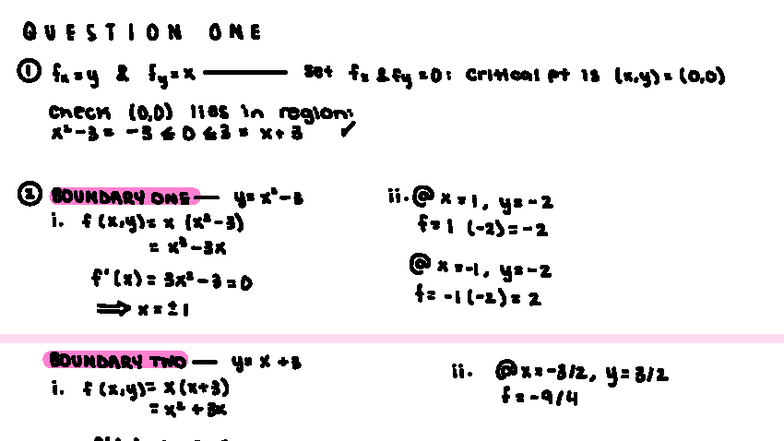 QUESTION ONE
① fx=y & fy=x —— set fx & fy=0: critical pt is (x,y)=(0,0)
check (0,0) lies in region:
x²-3 = -3 ≤ 0 ≤ 3 = x+3 ✓
② BOUNDARY ONE — y=x²-3
i. f(x,y)= x(x²-3)
= x³-3x
f'(x)=3x²-3=0
⟹ x=±1
ii. @ x=1, y=-2
f=1(-2)=-2
@ x=-1, y=-2
f=-1(-2)=2
BOUNDARY TWO — y=x+3
i. f(x,y)= x(x+3)
= x²+3x
ii. @ x=-3/2, y=3/2
f=-9/4